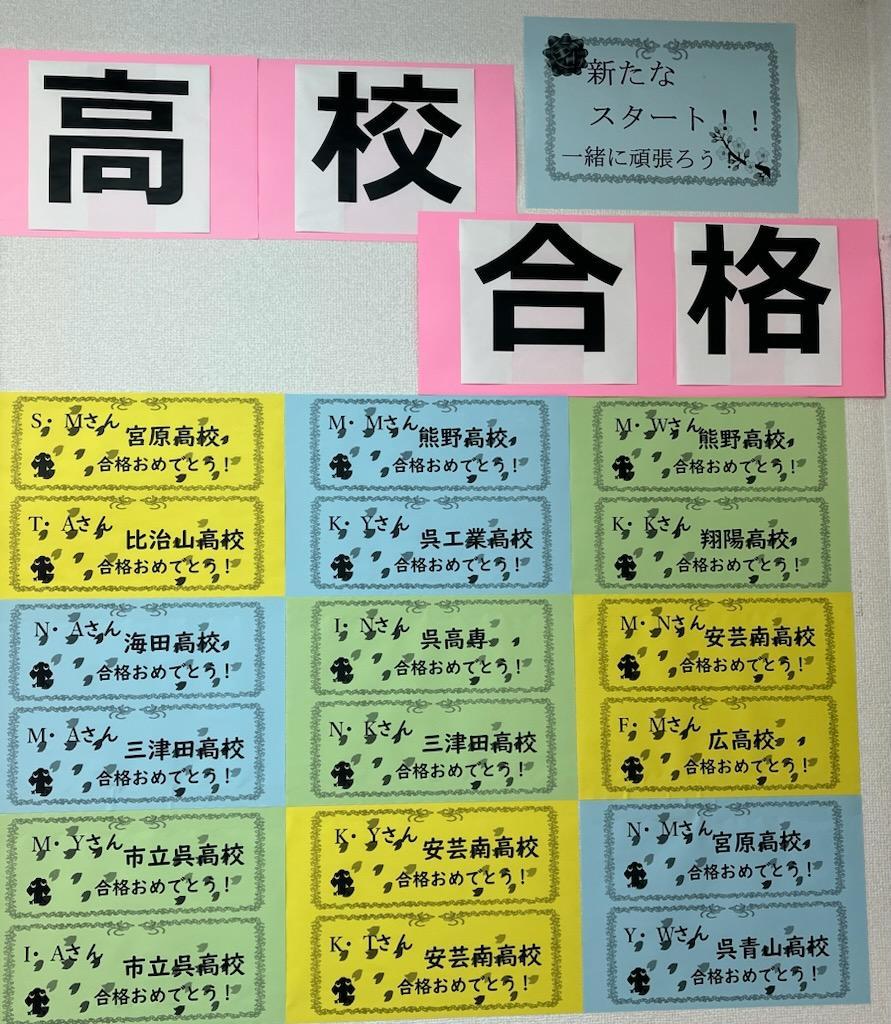 高校
合格
新たな
スタート！！
一緒に頑張ろう
S・Mさん 宮原高校
合格おめでとう！
T・Aさん 比治山高校
合格おめでとう！
M・Mさん 熊野高校
合格おめでとう！
K・Yさん 呉工業高校
合格おめでとう！
M・Wさん 熊野高校
合格おめでとう！
K・Kさん 翔陽高校
合格おめでとう！
N・Aさん 海田高校
合格おめでとう！
M・Aさん 三津田高校
合格おめでとう！
I・Nさん 呉高専
合格おめでとう！
N・Kさん 三津田高校
合格おめでとう！
M・Nさん 安芸南高校
合格おめでとう！
F・Mさん 広高校
合格おめでとう！
M・Yさん 市立呉高校
合格おめでとう！
I・Aさん 市立呉高校
合格おめでとう！
K・Yさん 安芸南高校
合格おめでとう！
K・Tさん 安芸南高校
合格おめでとう！
N・Mさん 宮原高校
合格おめでとう！
Y・Wさん 呉青山高校
合格おめでとう！